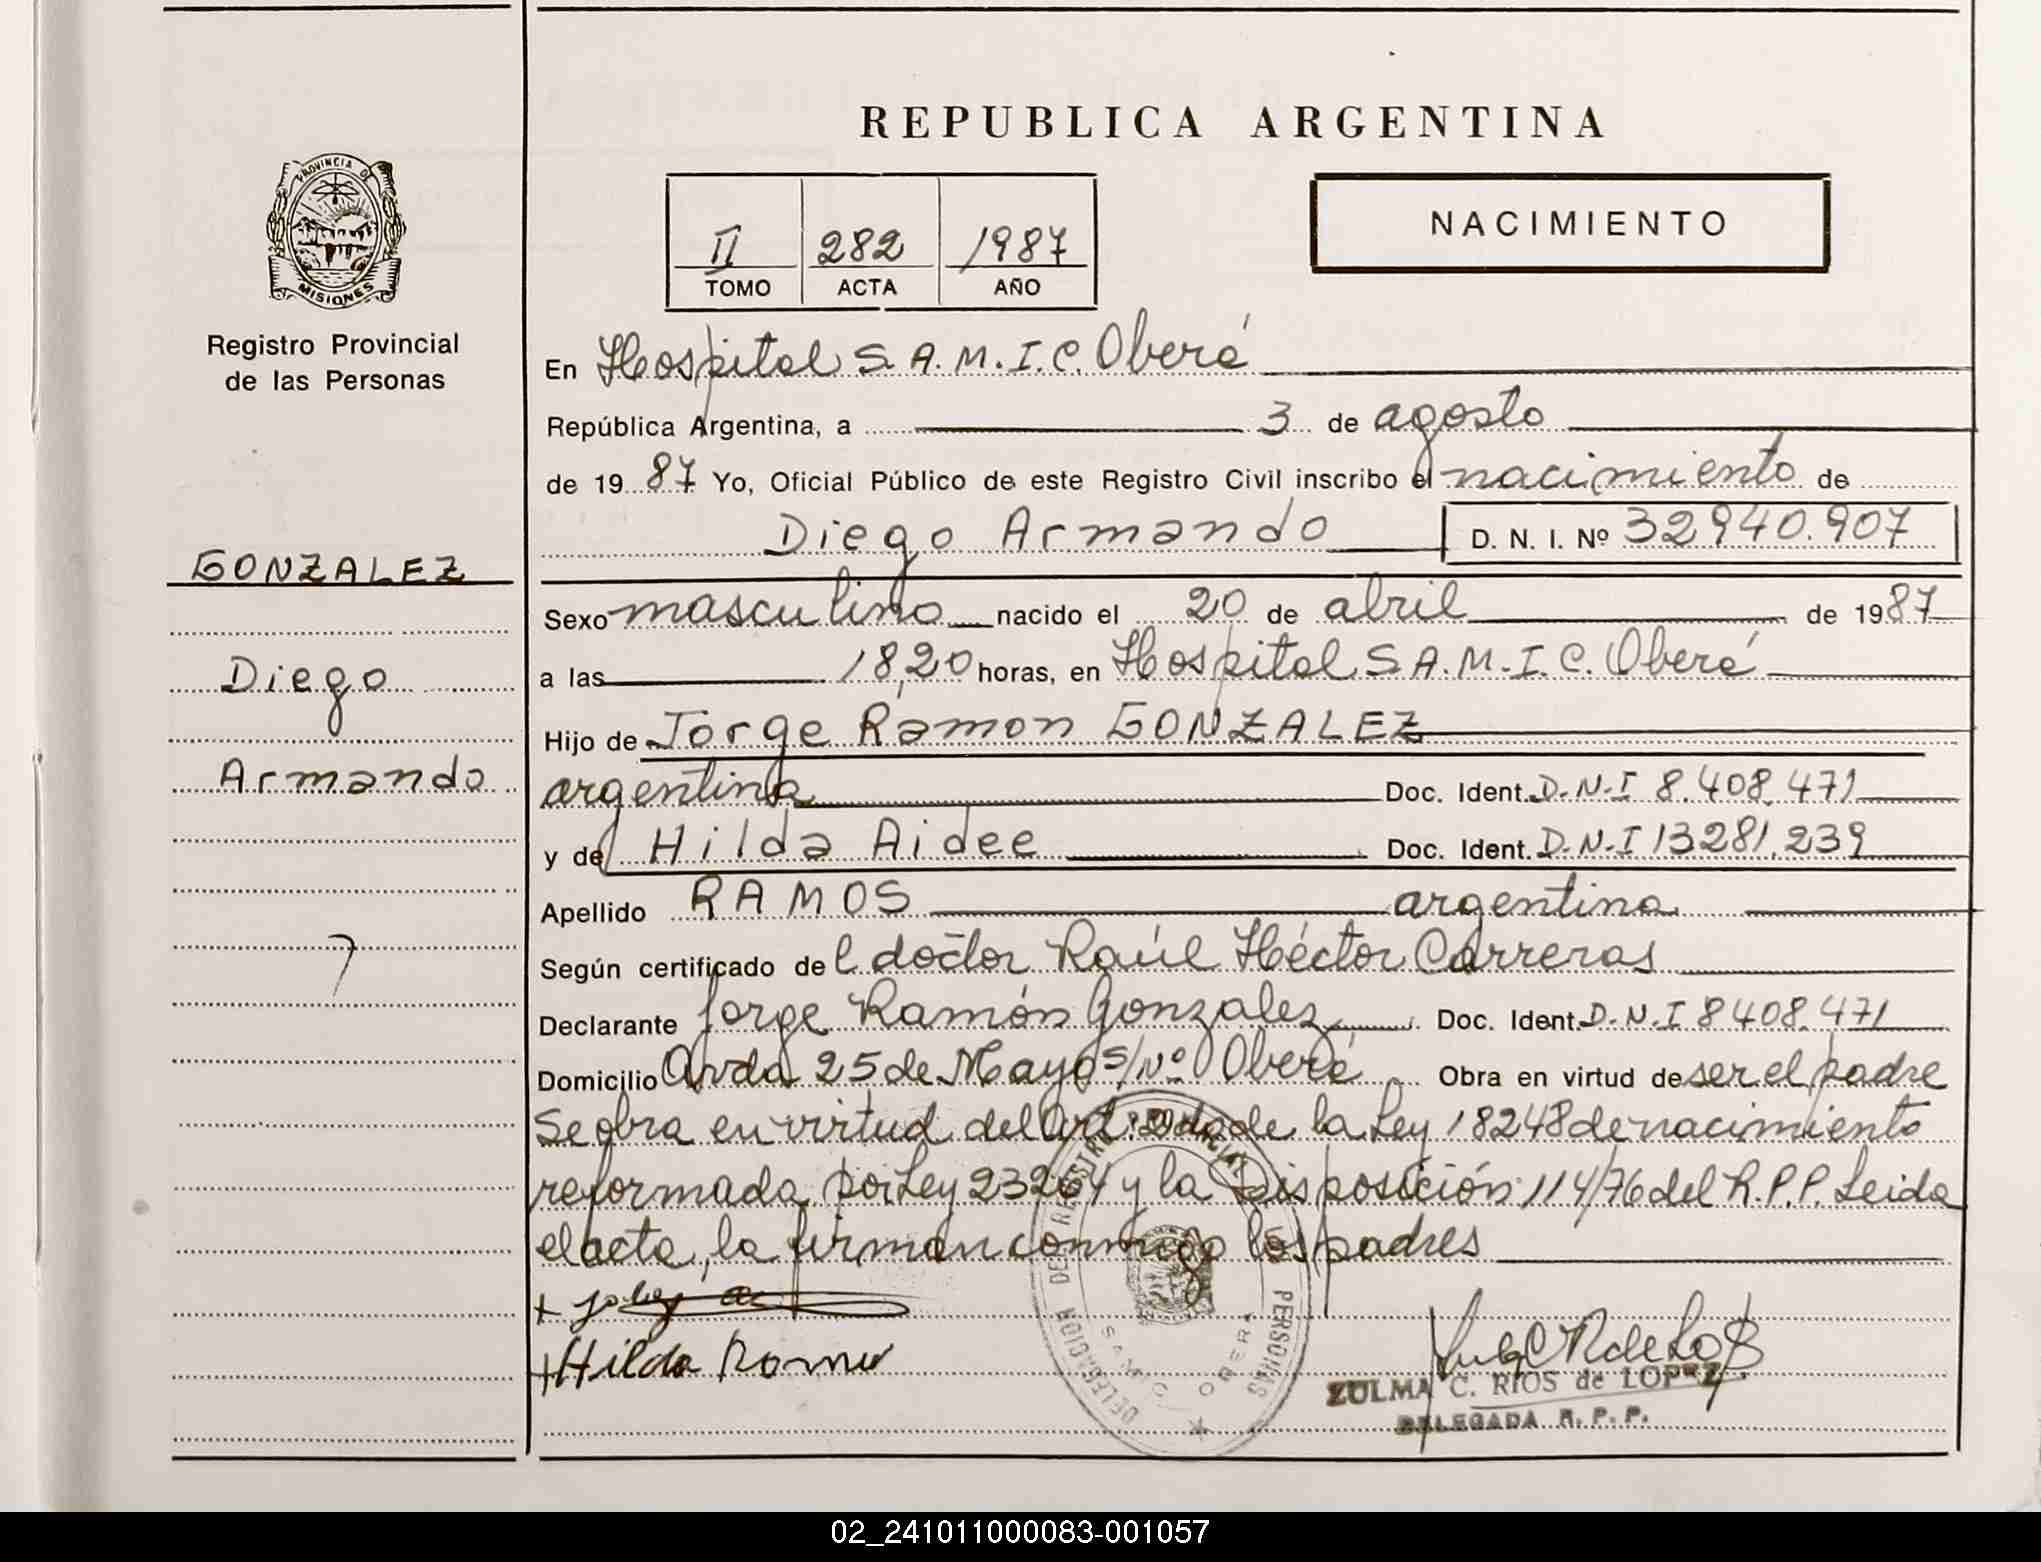 REPUBLICA ARGENTINA
PROVINCIA DE
MISIONES
Registro Provincial
de las Personas
II 282 1987
TOMO ACTA AÑO
NACIMIENTO
En Hospital S.A.M.I.C. Oberá
República Argentina, a 3 de agosto
de 1987 Yo, Oficial Público de este Registro Civil inscribo el nacimiento de
Diego Armando D. N. I. Nº 32940.907
GONZALEZ
Diego
Armando
Sexo masculino nacido el 20 de abril de 1987
a las 18,20 horas, en Hospital S.A.M.I.C. Oberá
Hijo de Jorge Ramon GONZALEZ
argentina Doc. Ident. D.N.I 8.408.471
y de Hilda Aidee Doc. Ident. D.N.I 13281.239
Apellido RAMOS argentina
Según certificado del doctor Raúl Héctor Carreras
Declarante Jorge Ramón Gonzalez Doc. Ident. D.N.I 8408.471
Domicilio Avda 25 de Mayo S/Nº Oberá Obra en virtud de ser el padre
Se obra en virtud del Art. 2do de la Ley 18248 de nacimiento
reformada por Ley 23264 y la Disposición 114/76 del R.P.P. Leida
el acta, la firman conmigo los padres
Hilda
DELEGACION DEL REGISTRO PROVINCIAL DE LAS PERSONAS
SAMIC OBERA
ZULMA C. RIOS de LOPEZ
DELEGADA R. P. P.
02_241011000083-001057